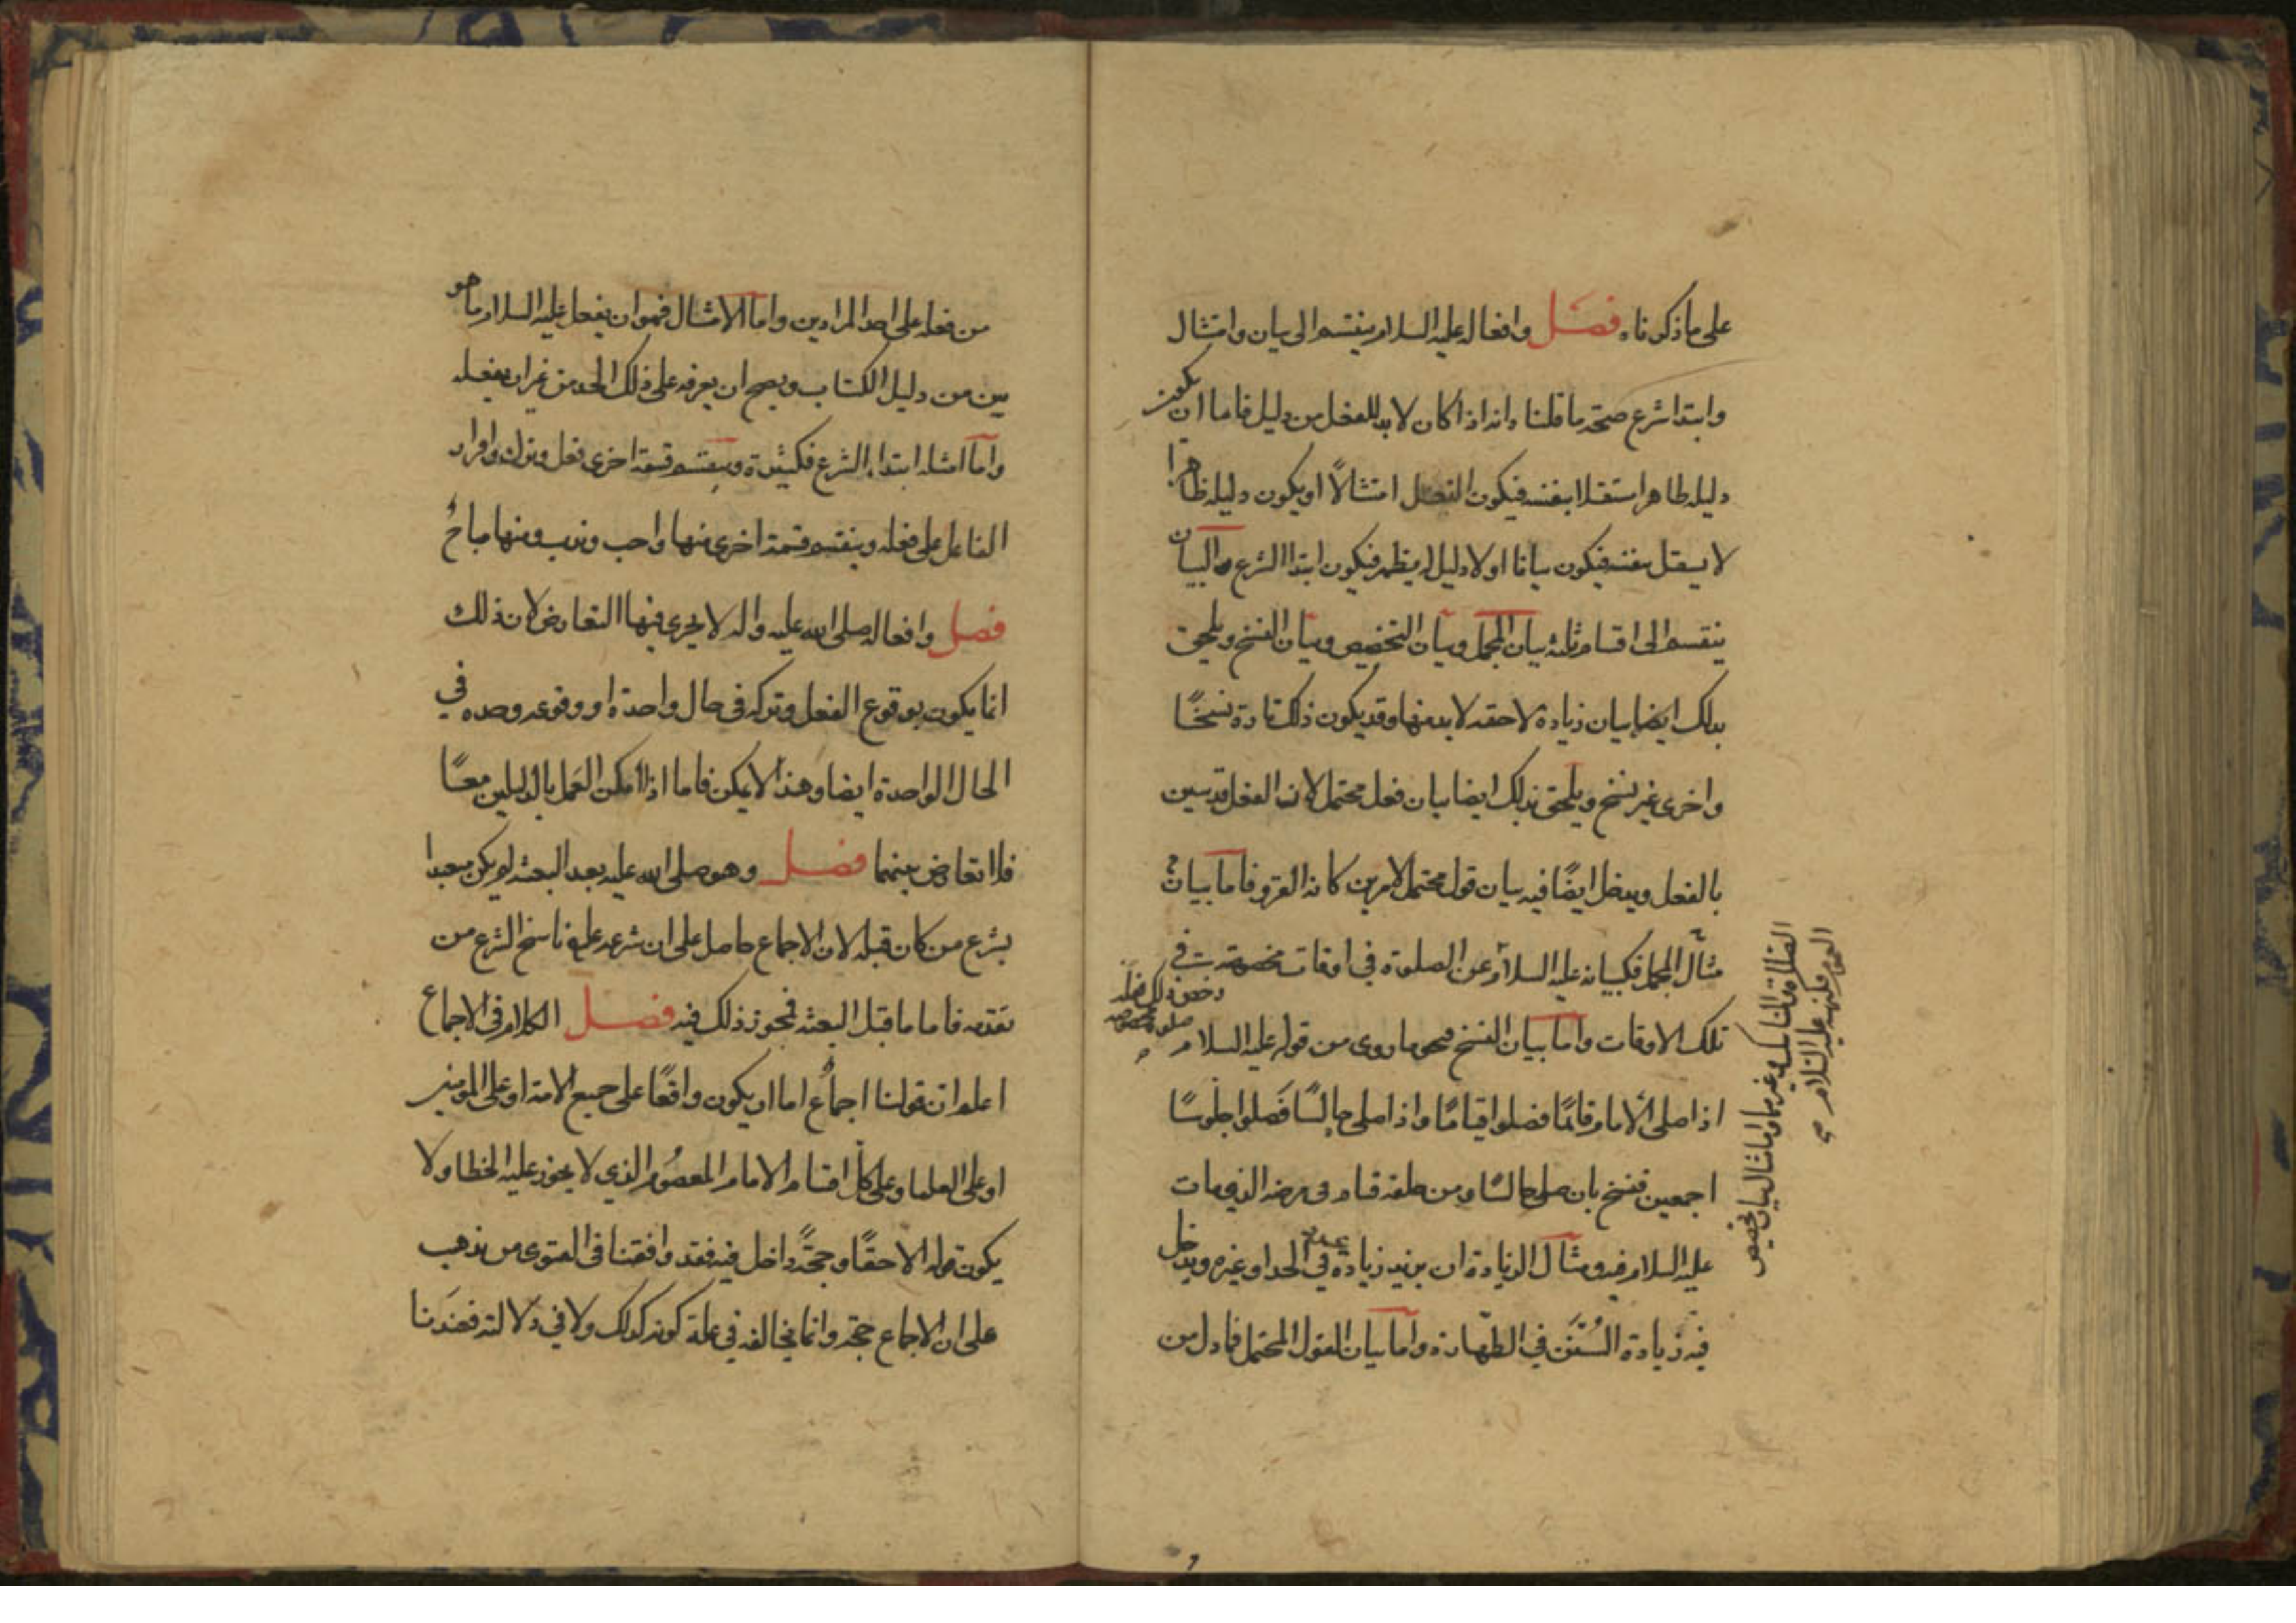 على ما ذكرناه فصل وافعاله عليه السلام ينقسم الى بيان وامتثال
وابتدا شرع صحة ما قلنا وانه اذا كان لابد للفعل من دليل فاما ان يكون
دليله ظاهرا مستقلا بنفسه فيكون الفعل امتثالًا او يكون دليله ظاهرا
لا يستقل بنفسه فيكون بيانا او لا دليل له يظهر فيكون ابتدا الشرع والبيان
ينقسم الى اقسام ثلثه بيان المجمل وبيان التخصيص وبيان النسخ ويلحق
بذلك ايضا بيان زيادة لاحقه لابد منها وقد يكون ذلك تارة نسخًا
واخرى غير نسخ ويلحق بذلك ايضا بيان فعل محتمل لان الفعل قد يبين
بالفعل ويدخل ايضًا فيه بيان قول محتمل لامرين كانه القرو فاما بيان
مثال المجمل فكبيانه عليه السلام عن الصلوة في اوقات مخصوصة في
تلك الاوقات واما بيان النسخ فنحو ما روى من قوله عليه السلام
اذا صلى الامام قائمًا فصلوا قيامًا واذا صلى جالسًا فصلوا جلوسًا
اجمعين فنسخ بان صلى جالسًا ومن خلفه قيام في مرضه الذي مات
عليه السلام فيه ومثال الزيادة ان يزيد زيادة في الحد او غيره ويدخل
فيه زيادة السُّنَن في الطهارة واما بيان القول المحتمل فما دل من
من فعله على احد المرادين واما الامتثال فهو ان يفعل عليه السلام ما هو
بين من دليل الكتاب ويصح ان يعرفه على ذلك الحد من غير ان يفعله
واما امثله ابتداء الشرع فكثيرة وينقسم قسمة اخرى فعل وترك واقرار
الفاعل على فعله وينقسم قسمة اخرى منها واجب وندب ومنها مباحٌ
فصل وافعاله صلى الله عليه واله لا يجرى فيها التعارض لان ذلك
انما يكون بوقوع الفعل وتركه في حال واحدة او وقوعه وضده في
الحال الواحدة ايضا وهذا لا يمكن فاما اذا امكن العمل بالدليلين معًا
فلا تعارض بينهما فصل وهو صلى الله عليه بعد البعثه لم يكن متعبدا
بشرع من كان قبله لان الاجماع حاصل على ان شرعه عليه ناسخ الشرع من
تقدمه فاما ما قبل البعثه فيجوز ذلك فيه فصل الكلام في الاجماع
اعلم ان قولنا اجماع اما ان يكون واقعًا على جميع الامة او على المومنين
او على العلما وعلى كل اقسام الامام المعصوم الذي لا يجوز عليه الخطا ولا
يكون قوله الا حقًا وحجةً داخل فيه فقد وافقنا في الفتوى من ذهب
على ان الاجماع حجة وانما نخالفه في علة كونه كذلك ولا في دلالته فعندنا